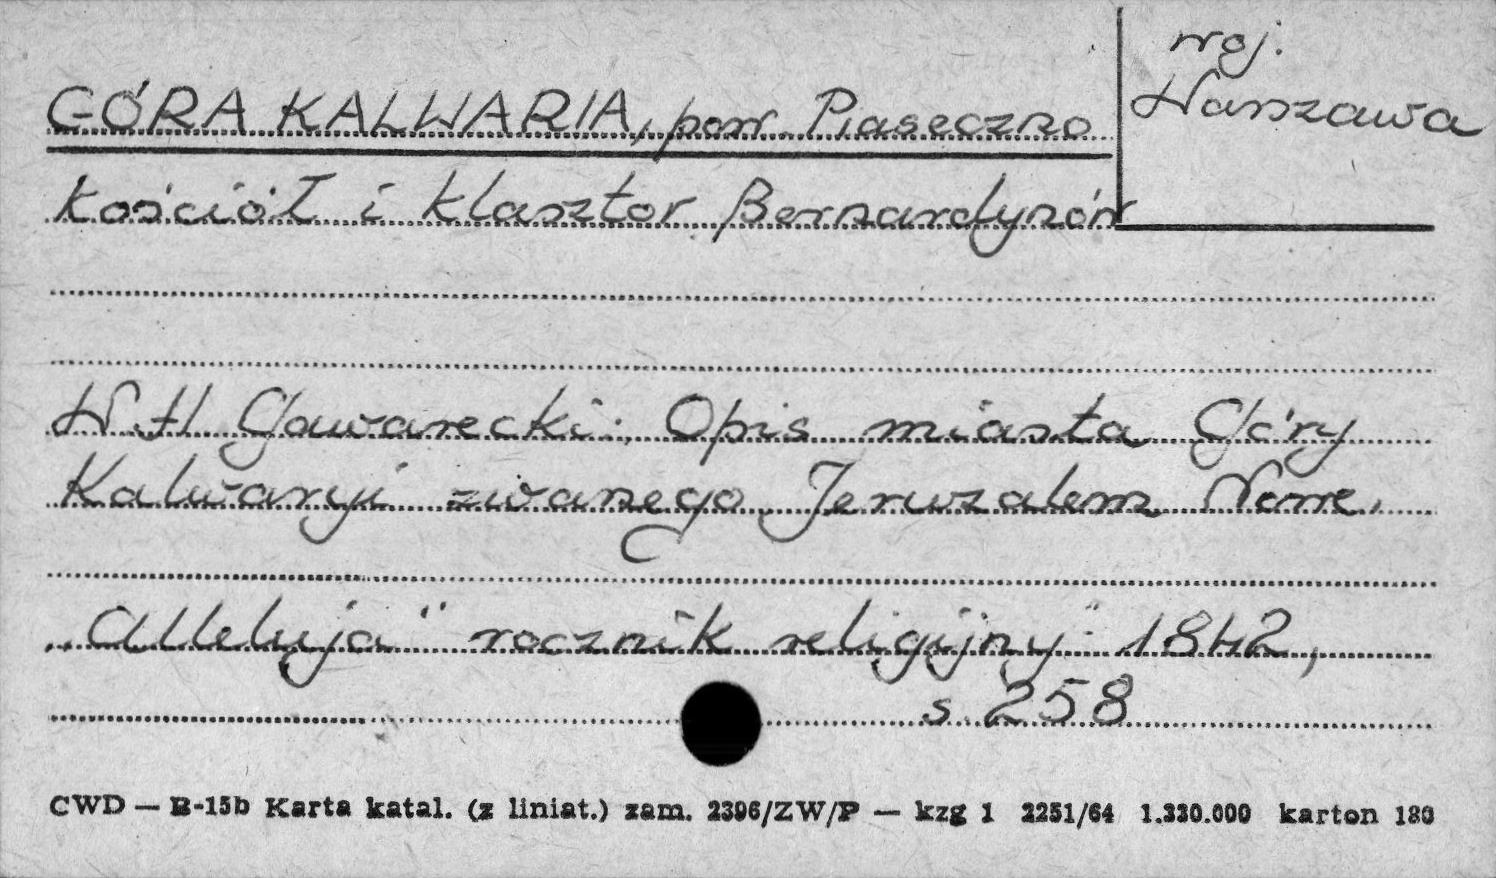 woj.
Warszawa
GÓRA KALWARIA, pow. Piaseczno
Kościół i klasztor Bernardynów
W H Gawarecki: Opis miasta Góry
Kalwaryi zwanego Jeruzalem Nowe,
„Alleluja" rocznik religijny" 1842,
s. 258
CWD — B-15b Karta katal. (z liniat.) zam. 2396/ZW/P — kzg 1 2251/64 1.330.000 karton 180